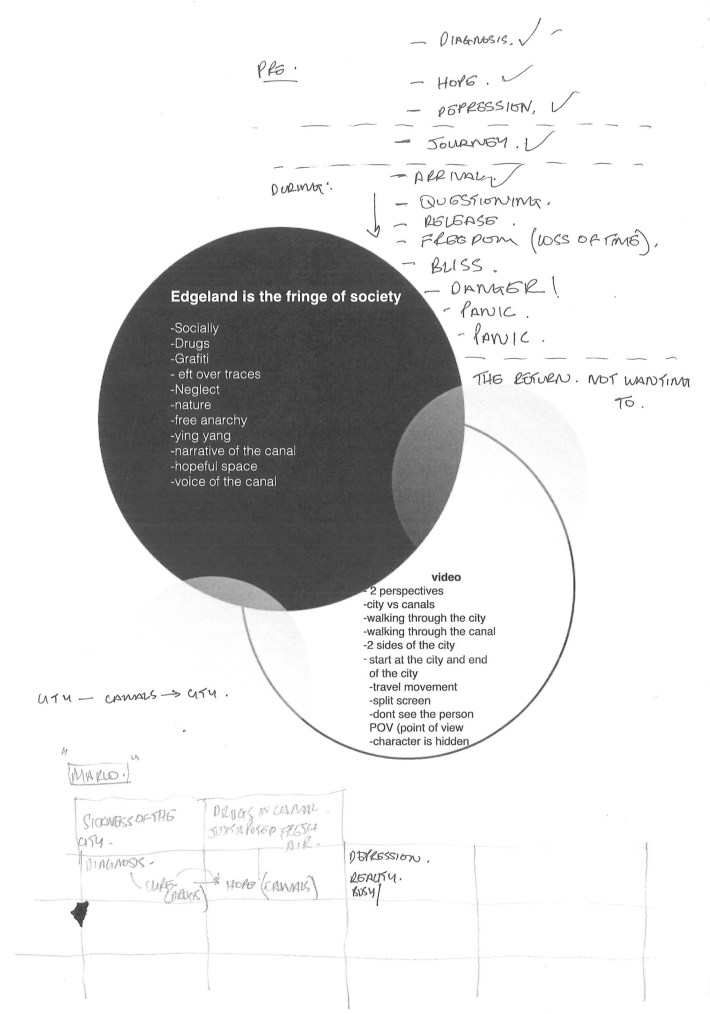 PRE.
- DIAGNOSIS. ✓ -
- HOPE. ✓
- DEPRESSION. ✓
- JOURNEY. ✓
DURING:
- ARRIVAL. ✓
- QUESTIONING.
- RELEASE.
- FREEDOM (LOSS OF TIME).
- BLISS.
- DANGER!
- PANIC.
- PANIC.
THE RETURN. NOT WANTING
TO.
Edgeland is the fringe of society
-Socially
-Drugs
-Grafiti
- eft over traces
-Neglect
-nature
-free anarchy
-ying yang
-narrative of the canal
-hopeful space
-voice of the canal
video
- 2 perspectives
-city vs canals
-walking through the city
-walking through the canal
-2 sides of the city
- start at the city and end
of the city
-travel movement
-split screen
-dont see the person
POV (point of view
-character is hidden
CITY — CANALS → CITY.
"MARLO."
SICKNESS OF THE
CITY.
DRUGS IN CANAL
JUXTAPOSED FRESH
AIR.
DIAGNOSIS.
CURE (DRUGS) → HOPE (CANALS)
DEPRESSION.
REALITY.
BUSY/